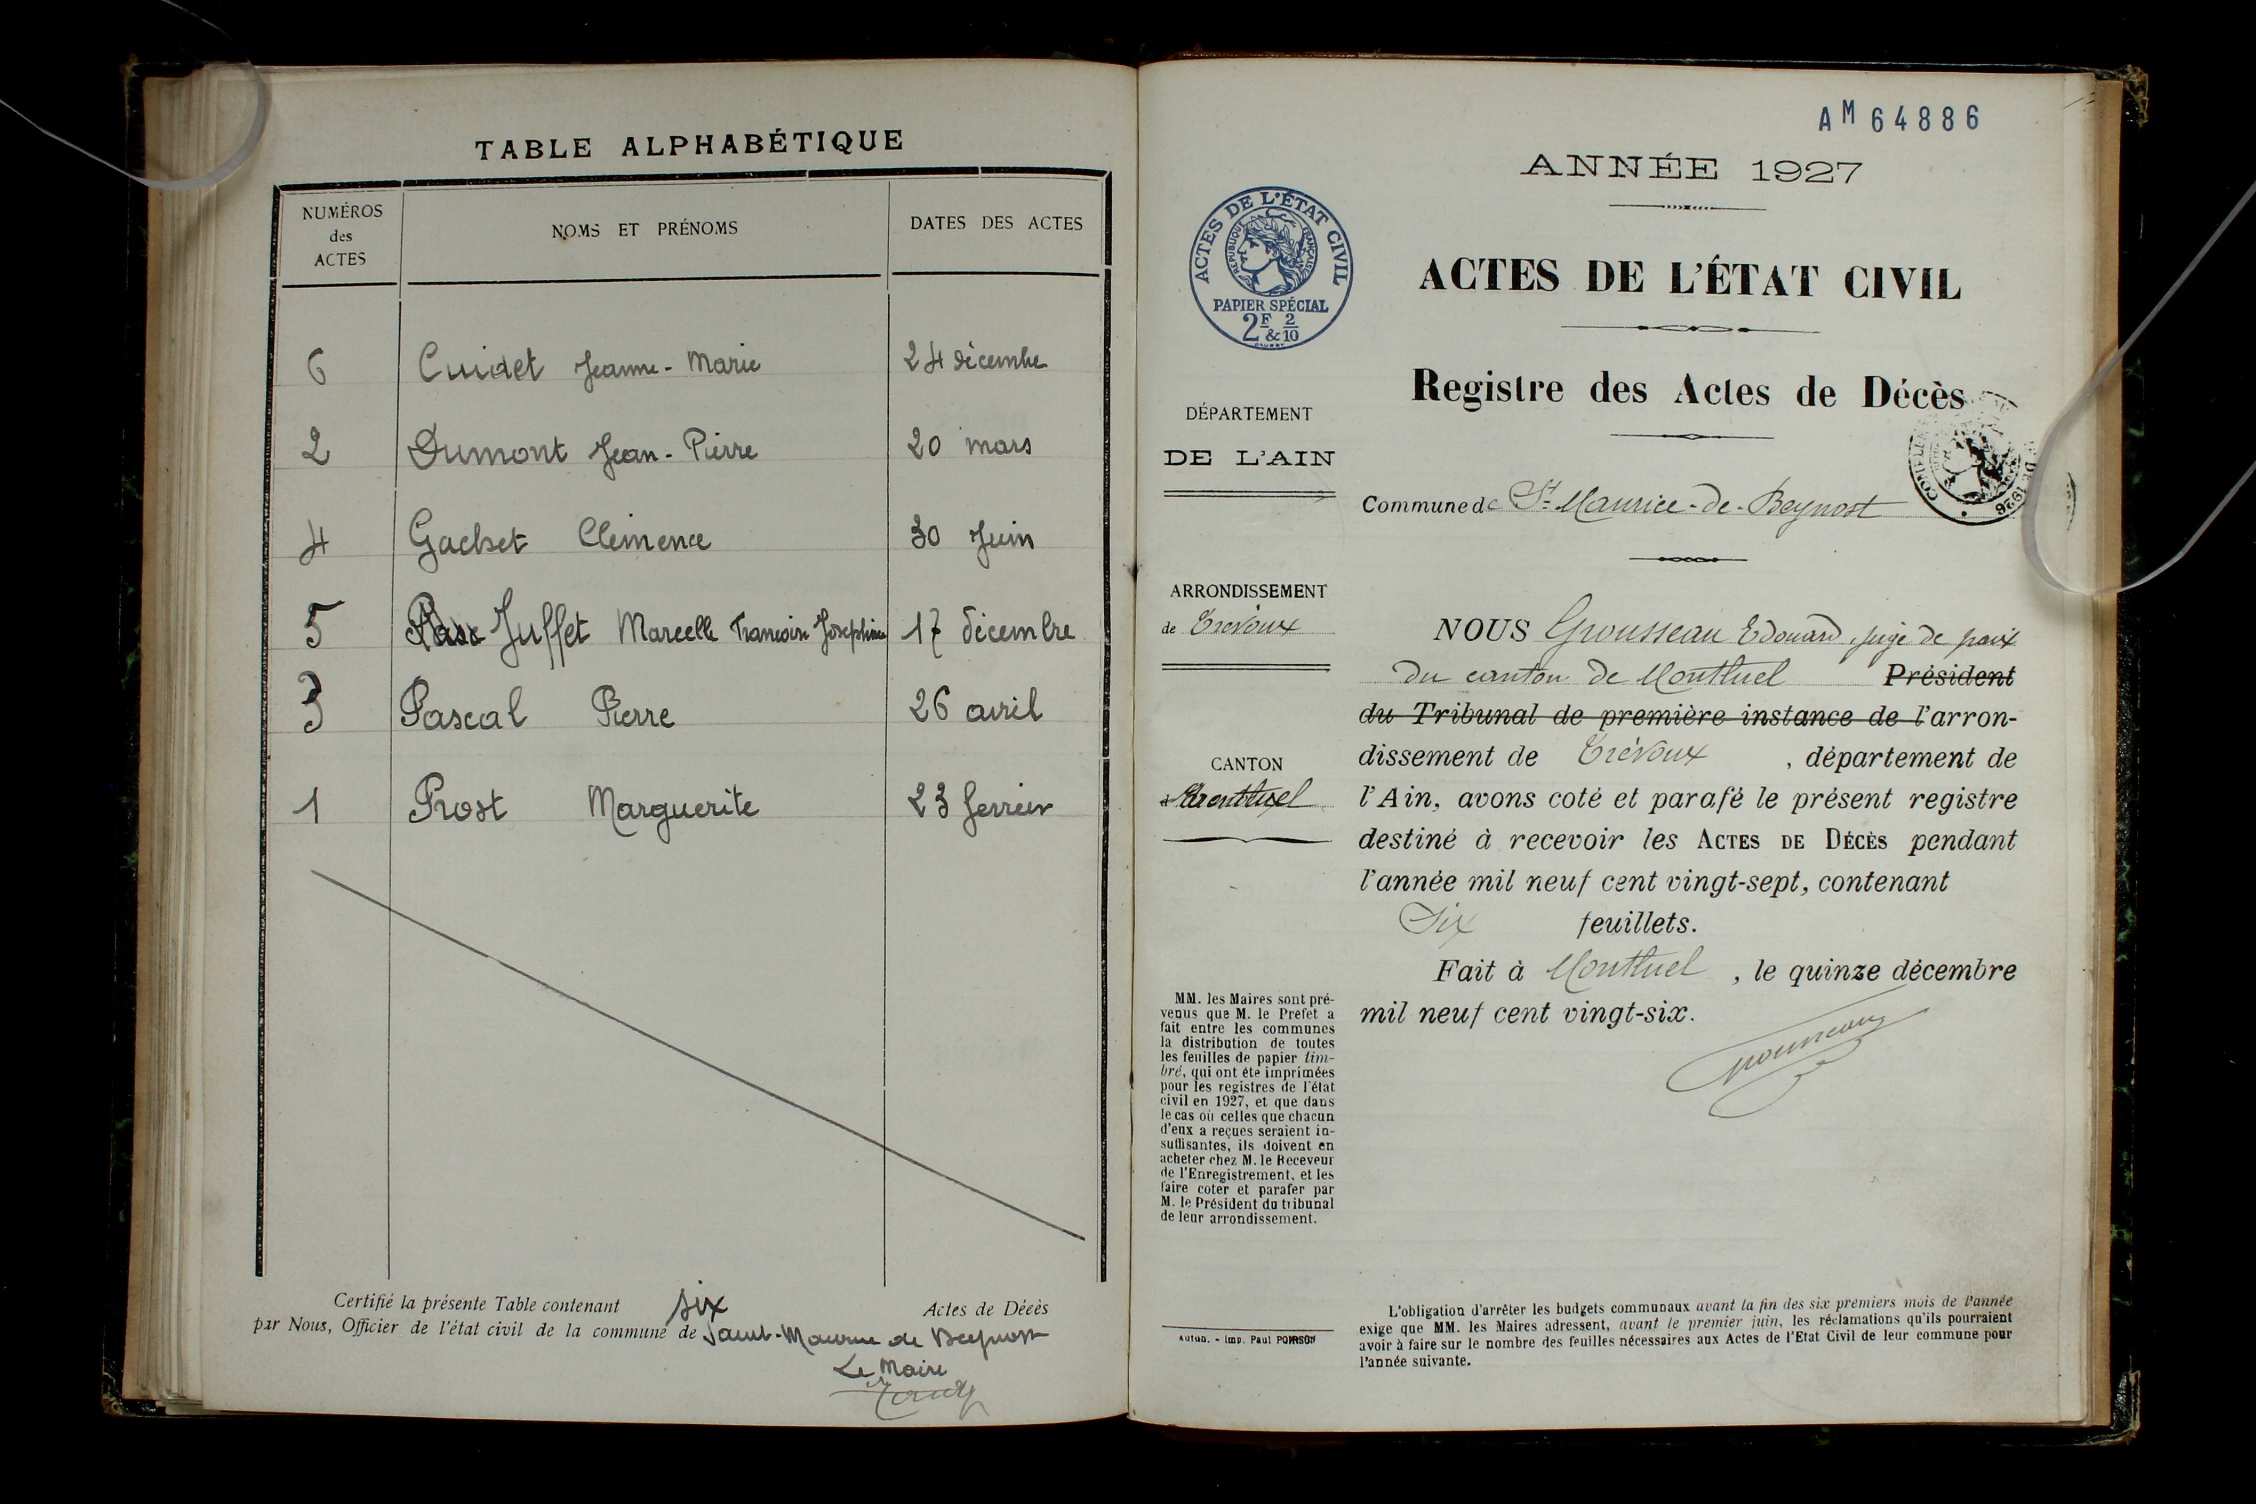 TABLE ALPHABÉTIQUE
NUMÉROS
des
ACTES
NOMS ET PRÉNOMS
DATES DES ACTES
6 Cuidet Jeanne-Marie 24 décembre
2 Dumont Jean-Pierre 20 mars
4 Gachet Clémence 30 Juin
5 Juffet Marcelle Françoise Joséphine 17 décembre
3 Pascal Pierre 26 avril
1 Prost Marguerite 23 ferrier
Certifié la présente Table contenant six Actes de Décès
par Nous, Officier de l'état civil de la commune de Saint-Maurice de Beynost
Le Maire
AM 64886
ANNÉE 1927
ACTES DE L'ÉTAT CIVIL
RÉPUBLIQUE FRANÇAISE
PAPIER SPÉCIAL
2F & 2/10
ACTES DE L'ÉTAT CIVIL
Registre des Actes de Décès
DÉPARTEMENT
DE L'AIN
Commune de St-Maurice-de-Beynost
ARRONDISSEMENT
de Trévoux
CANTON
Montluel
NOUS Grousseau Edouard, juge de paix
du canton de Montluel Président
du Tribunal de première instance de l'arron-
dissement de Trévoux, département de
l'Ain, avons coté et parafé le présent registre
destiné à recevoir les ACTES DE DÉCÈS pendant
l'année mil neuf cent vingt-sept, contenant
Six feuillets.
Fait à Montluel, le quinze décembre
mil neuf cent vingt-six.
Grousseau
MM. les Maires sont pré-
venus que M. le Préfet a
fait entre les communes
la distribution de toutes
les feuilles de papier tim-
bré, qui ont été imprimées
pour les registres de l'état
civil en 1927, et que dans
le cas où celles que chacun
d'eux a reçues seraient in-
suffisantes, ils doivent en
acheter chez M. le Receveur
de l'Enregistrement, et les
faire coter et parafer par
M. le Président du tribunal
de leur arrondissement.
Autun. - Imp. Paul POIRSON
L'obligation d'arrêter les budgets communaux avant la fin des six premiers mois de l'année
exige que MM. les Maires adressent, avant le premier juin, les réclamations qu'ils pourraient
avoir à faire sur le nombre des feuilles nécessaires aux Actes de l'Etat Civil de leur commune pour
l'année suivante.